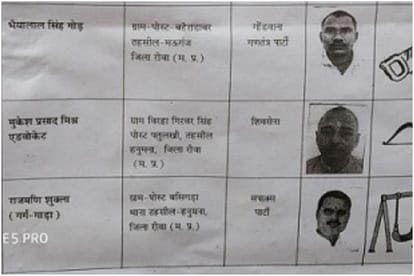 भैयालाल सिंह गोड़
ग्राम-पोस्ट-बहेराडाबर
तहसील-मऊगंज
जिला रीवा (म. प्र.)
गोंडवाना
गणतंत्र पार्टी
मुकेश प्रसाद मिश्र
एडवोकेट
ग्राम बिरहा गिरवर सिंह
पोस्ट पतुलखी, तहसील
हनुमना, जिला रीवा
(म. प्र.)
शिवसेना
राजमणि शुक्ला
(गर्ग-गाड़ा)
ग्राम-पोस्ट बसिगड़ा
थाना तहसील-हनुमना,
जिला रीवा (म. प्र.)
सपाक्स
पार्टी
E5 PRO